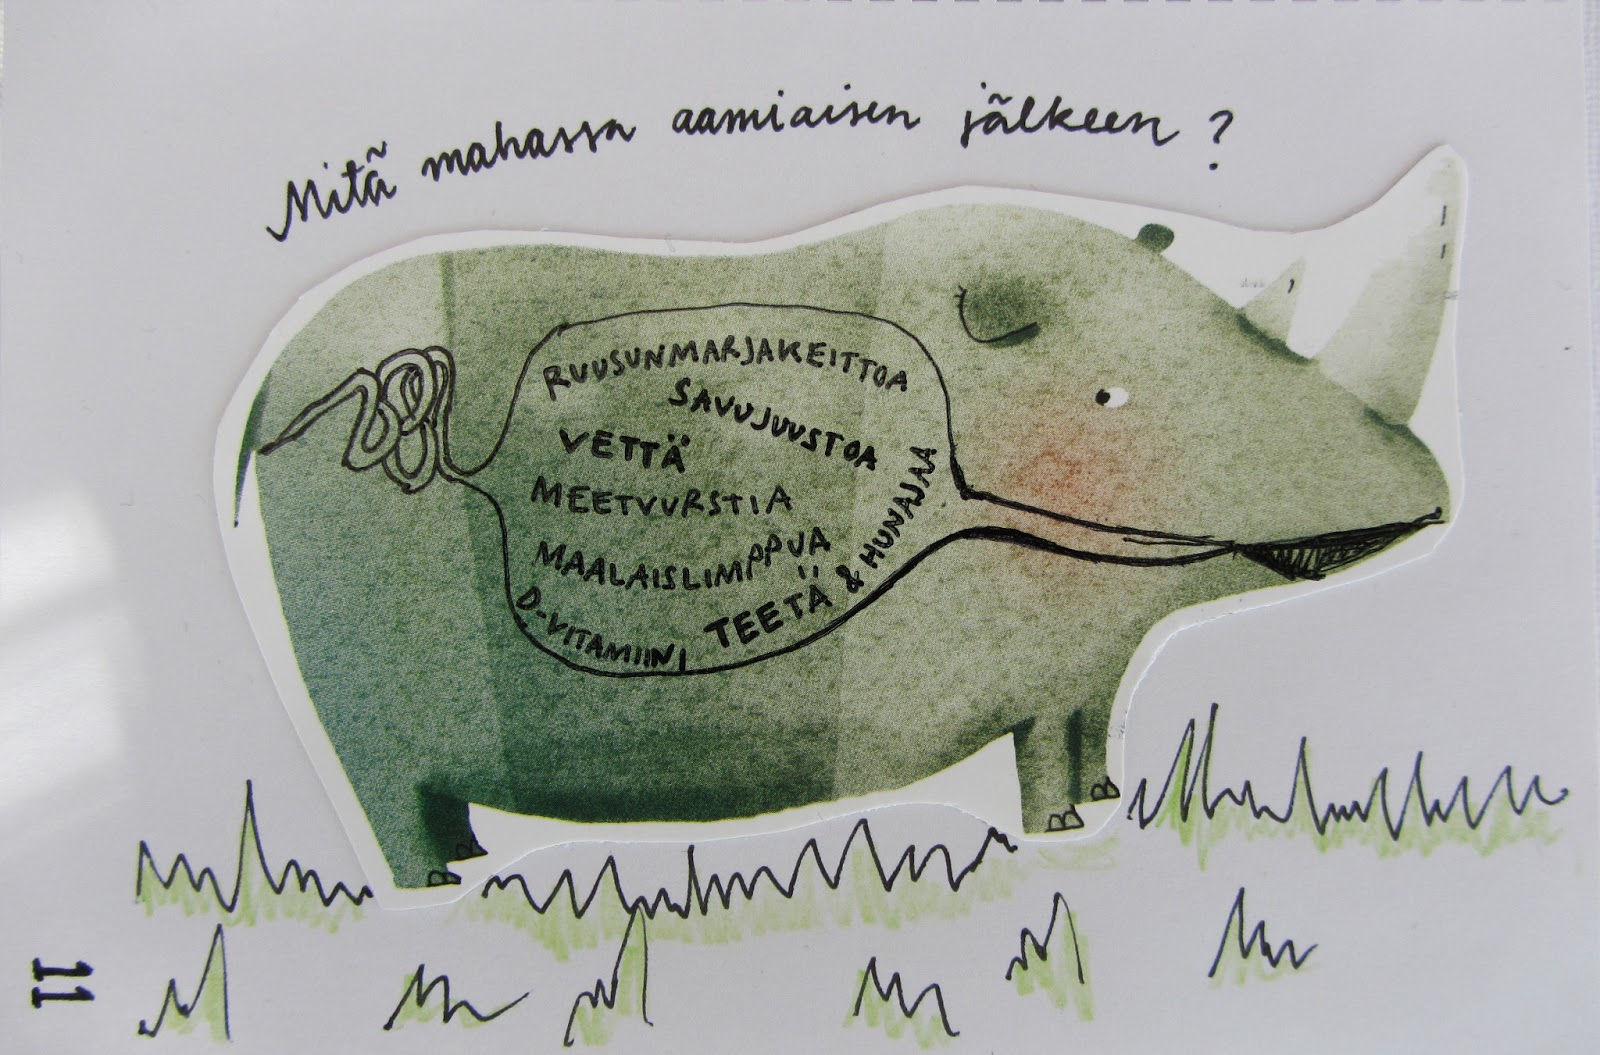 Mitä mahassa aamiaisen jälkeen?
RUUSUNMARJAKEITTOA
SAVUJUUSTOA
VETTÄ
MEETVURSTIA
MAALAISLIMPPUA
D-VITAMIINI
TEETÄ & HUNAJAA
11